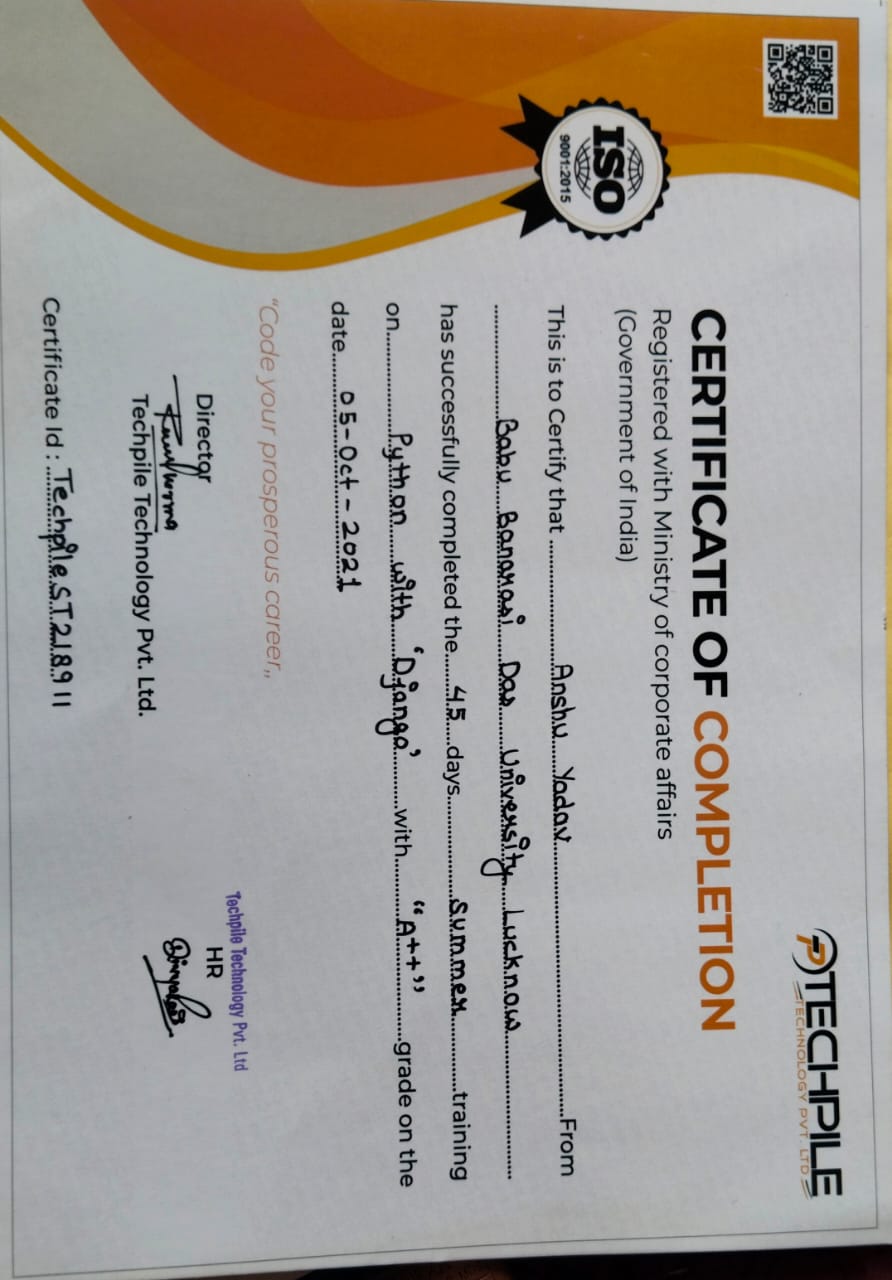 TECHPILE
TECHNOLOGY PVT. LTD
CERTIFICATE OF COMPLETION
Registered with Ministry of corporate affairs
(Government of India)
ISO
9001:2015
This is to Certify that Anshu Yadav From
Babu Banarasi Das University Lucknow
has successfully completed the 45 days Summer training
on Python with 'Django' with "A++" grade on the
date 05-Oct-2021
“Code your prosperous career„
Techpile Technology Pvt. Ltd
HR
Director
Techpile Technology Pvt. Ltd.
Certificate Id : TechpileST218911